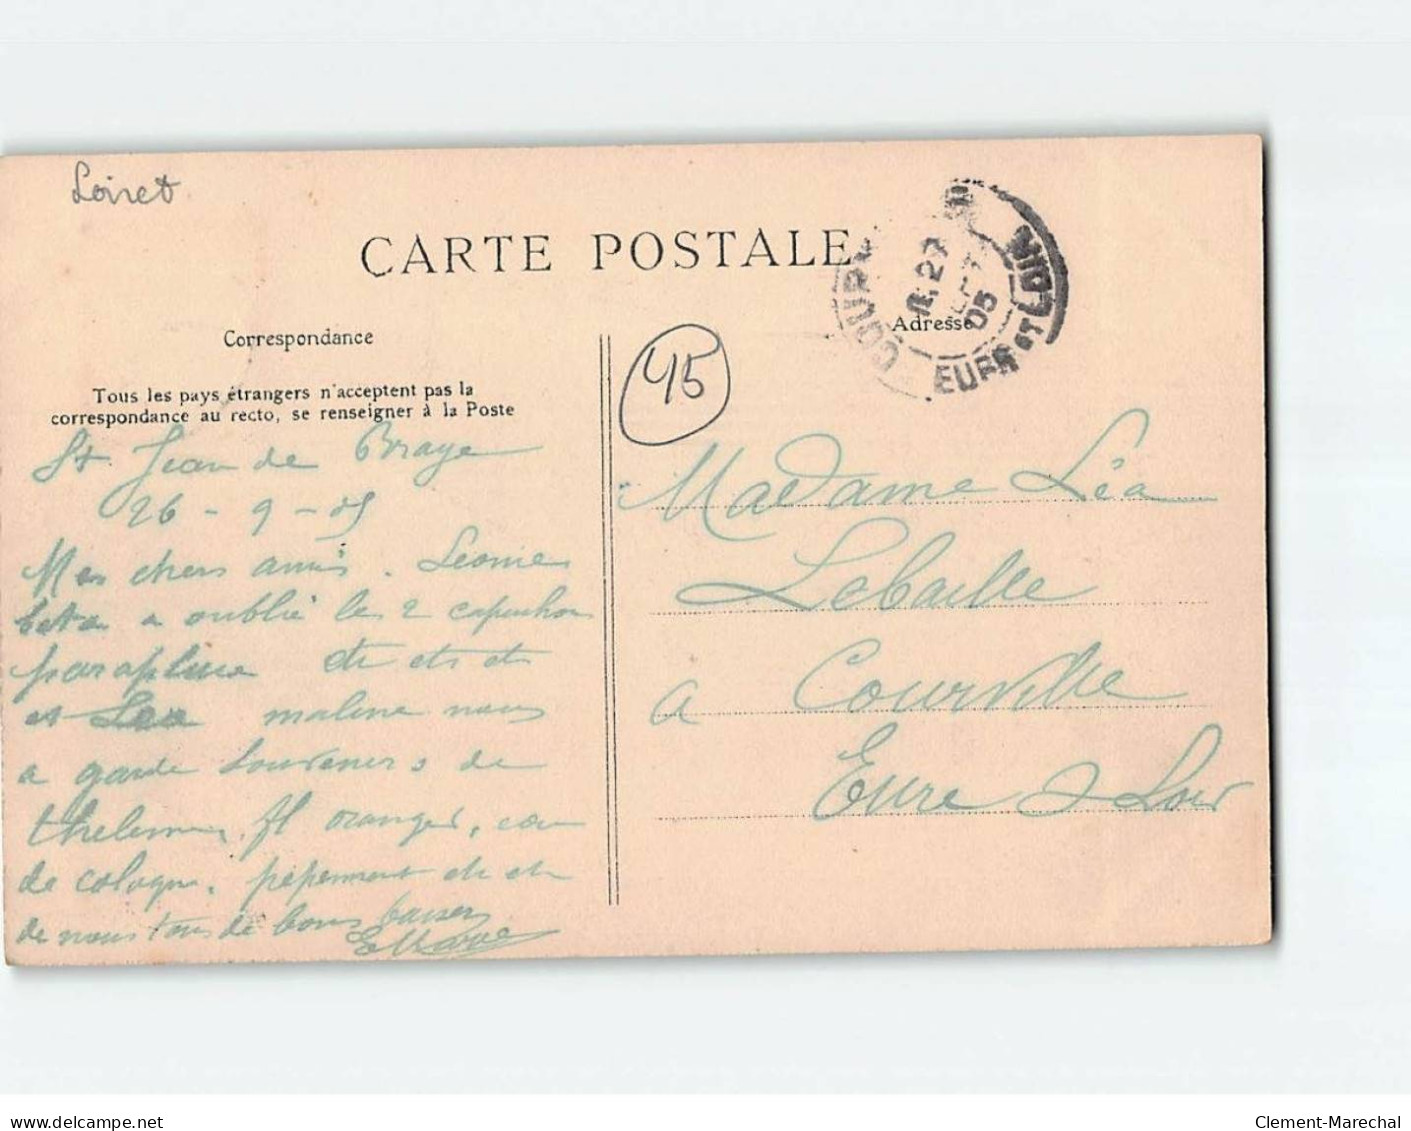 Loiret
CARTE POSTALE
27
05
EURE ET LOIR
Correspondance
Adresse
45
Tous les pays étrangers n'acceptent pas la
correspondance au recto, se renseigner à la Poste
St Jean de Braye
26 - 9 - 05
Mes chers amis. Leonie
a oublié les 2 capuchons
parapluie etc etc etc
et Lea maline nous
a garde souveners de
thelemn, fl oranger, eau
de cologne. peperment etc etc
de nous tous de bons baisers
Madame Léa
Lebaille
a Courville
Eure & Loir
delcampe.net
Clement-Marechal